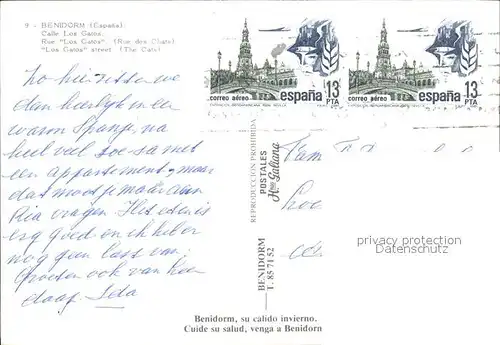 9 - BENIDORM (España)
Calle Los Gatos.
Rue "Los Gatos" (Rue des Chats)
"Los Gatos" street (The Cats)
zo hier zitten we
dan heerlijk in een
warm Spanje, na
heel veel met
een appartement, maar
dat moet je maar aan
Ria vragen. Het eten is
erg goed en ik heb er
nog geen last van.
Groeten ook van
daag. Ida
correo aéreo españa 13
PTA
correo aéreo españa 13
PTA
REPRODUCCION PROHIBIDA
POSTALES
Hnos Galiana
BENIDORM
T. 85 71 52
Fam
privacy protection
Datenschutz
Benidorm, su calido invierno.
Cuide su salud, venga a Benidorm